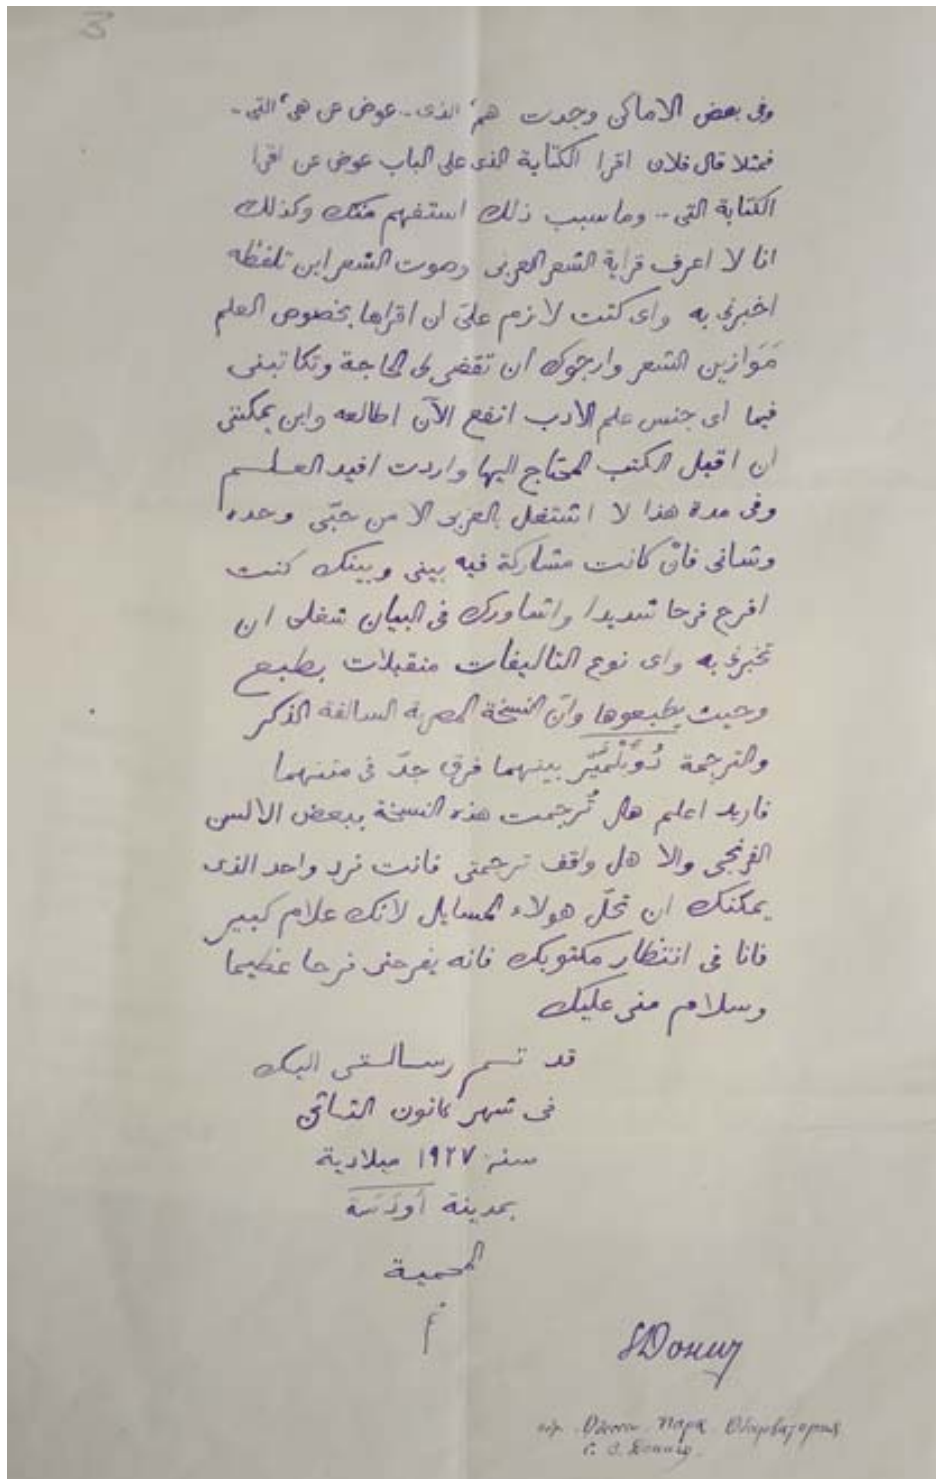 3
وفى بعض الاماكن وجدت هم الذى.. عوض عن هى التى..
فمثلا قال فلان اقرا الكتابة الذى على الباب عوض عن اقرا
الكتابة التى.. وما سبب ذلك استفهم منك وكذلك
انا لا اعرف قراية الشعر العربى وصوت الشعر اين تلفظه
اخبرنى به واى كتب لازم علىّ ان اقراها بخصوص العلم
مَوَازين الشعر وارجوك ان تقضى لى الحاجة وتكاتبنى
فيما اى جنس علم الادب انفع الآن اطالعه واين يمكننى
ان اقبل الكتب المحتاج اليها واردت افيد العلم
وفى مدة هذا لا اشتغل بالعربى الا من حبّى وحده
وشانى فانْ كانت مشاركة فيه بينى وبينك كنت
افرح فرحا شديدا واشاورك فى البيان شغلى ان
تخبرنى به واى نوع التاليفات منقبلات بطبع
وحيث يطبعوها وانّ النسخة المصرية السالفة الذكر
والترجمة بينهما فرق جدّ فى متنهما
فاريد اعلم هل تُرجمت هذه النسخة ببعض الالسن
الفرنجى والا هل واقف ترجمتى فانت فرد واحد الذى
يمكنك ان تحلّ هولاء المسايل لانك علام كبير
فانا فى انتظار مكتوبك فانه يفرحنى فرحا عظيما
وسلام منى عليك
قد تم رسالتى اليك
فى شهر كانون الثانى
سنة ١٩٢٧ ميلادية
بمدينة اَودَسَة
المحمية
م
Одесса Парк Обсерватория